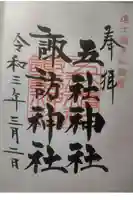 奉拝
五社神社
諏訪神社
令和三年三月二日